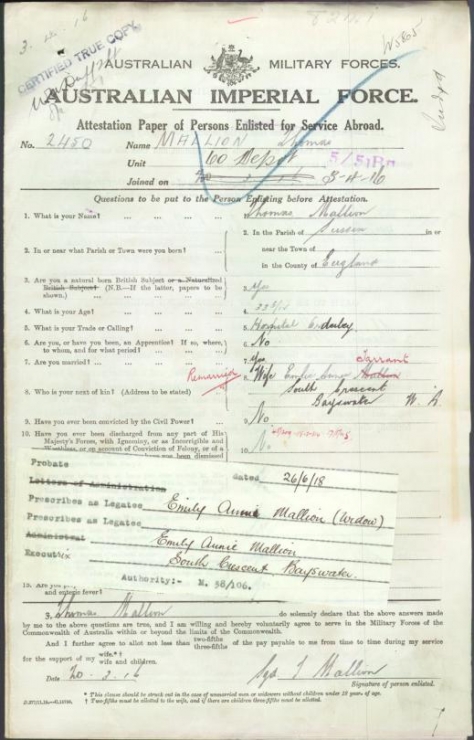 3. 16
CERTIFIED TRUE COPY
AUSTRALIAN MILITARY FORCES.
AUSTRALIAN IMPERIAL FORCE.
Attestation Paper of Persons Enlisted for Service Abroad.
No. 2450 Name MALLION Thomas
Unit 100 Depot 5/51 Rn
Joined on 3-4-16
Questions to be put to the Person Enlisting before Attestation.
1. What is your Name? ... ... ... ... 1. Thomas Mallion
2. In or near what Parish or Town were you born? ... 2. In the Parish of Sussex in or
near the Town of
in the County of England
3. Are you a natural born British Subject or a Naturalized
British Subject? (N.B.—If the latter, papers to be
shown.) ... ... ... ... 3. Yes
4. What is your Age? ... ... ... ... 4.
5. What is your Trade or Calling? ... ... ... 5. Hospital Orderly
6. Are you, or have you been, an Apprentice? If so, where,
to whom, and for what period? ... ... ... 6. No
7. Are you married? ... ... ... ... 7. Yes Tarrant
Remarried
8. Who is your next of kin? (Address to be stated) 8. Wife
South Crescent
Bayswater W. A.
9. Have you ever been convicted by the Civil Power? ... 9. No
10. Have you ever been discharged from any part of His
Majesty's Forces, with Ignominy, or as Incorrigible and
Worthless, or on account of Conviction of Felony, or of a
have you been dismissed
10. No
Probate
Letters of Administration dated 26/6/18
Prescribes as Legatee Emily Annie Mallion (Widow)
Prescribes as Legatee
Administrat Emily Annie Mallion
Executrix South Crescent, Bayswater.
Authority:- N. 58/106.
15. Are you
and enteric fever?
I, Thomas Mallion do solemnly declare that the above answers made
by me to the above questions are true, and I am willing and hereby voluntarily agree to serve in the Military Forces of the
Commonwealth of Australia within or beyond the limits of the Commonwealth.
And I further agree to allot not less than two-fifths three-fifths of the pay payable to me from time to time during my service
for the support of my wife.*† wife and children.
Date 20.3.16 Sgd T Mallion
Signature of person enlisted.
* This clause should be struck out in the case of unmarried men or widowers without children under 18 years of age.
† Two-fifths must be allotted to the wife, and if there are children three-fifths must be allotted.